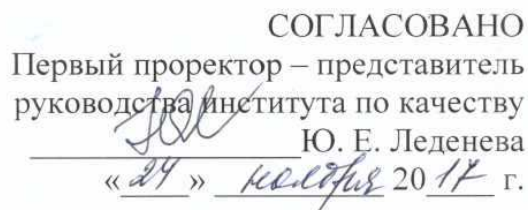 СОГЛАСОВАНО
Первый проректор – представитель
руководства института по качеству
Ю. Е. Леденева
«24» ноября 2017 г.